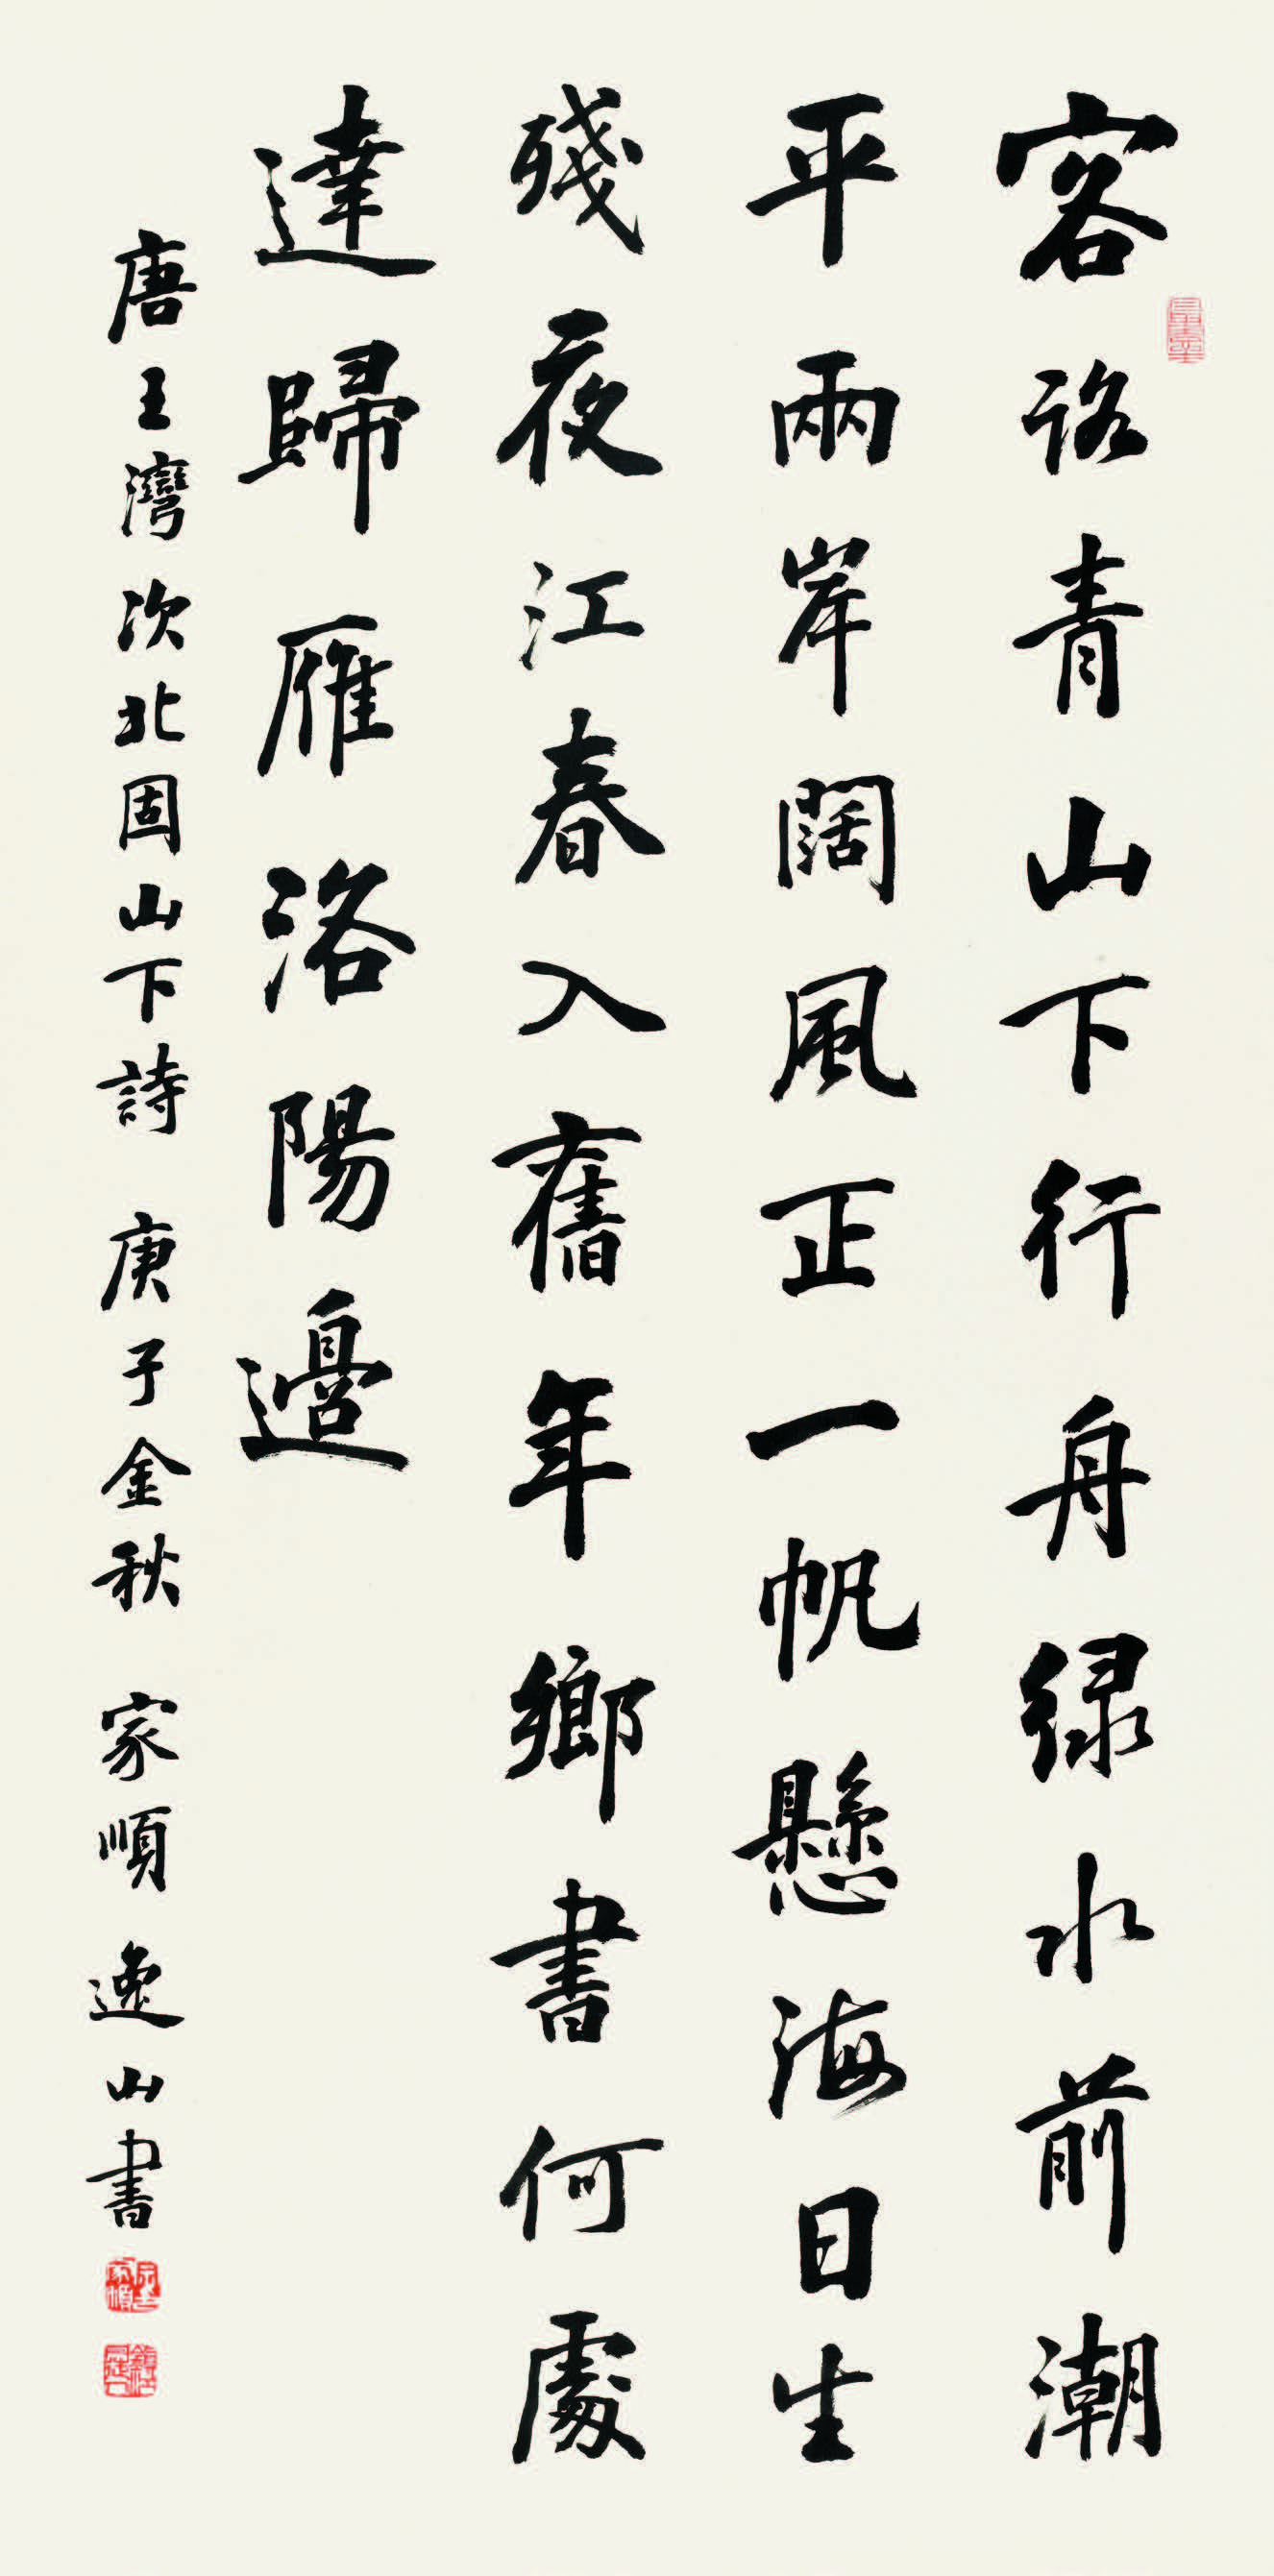 客路青山下行舟緑水前潮
平兩岸闊風正一帆懸海日生
殘夜江春入舊年鄉書何處
達歸雁洛陽邊
唐王灣次北固山下詩 庚子金秋 家順 逸山書